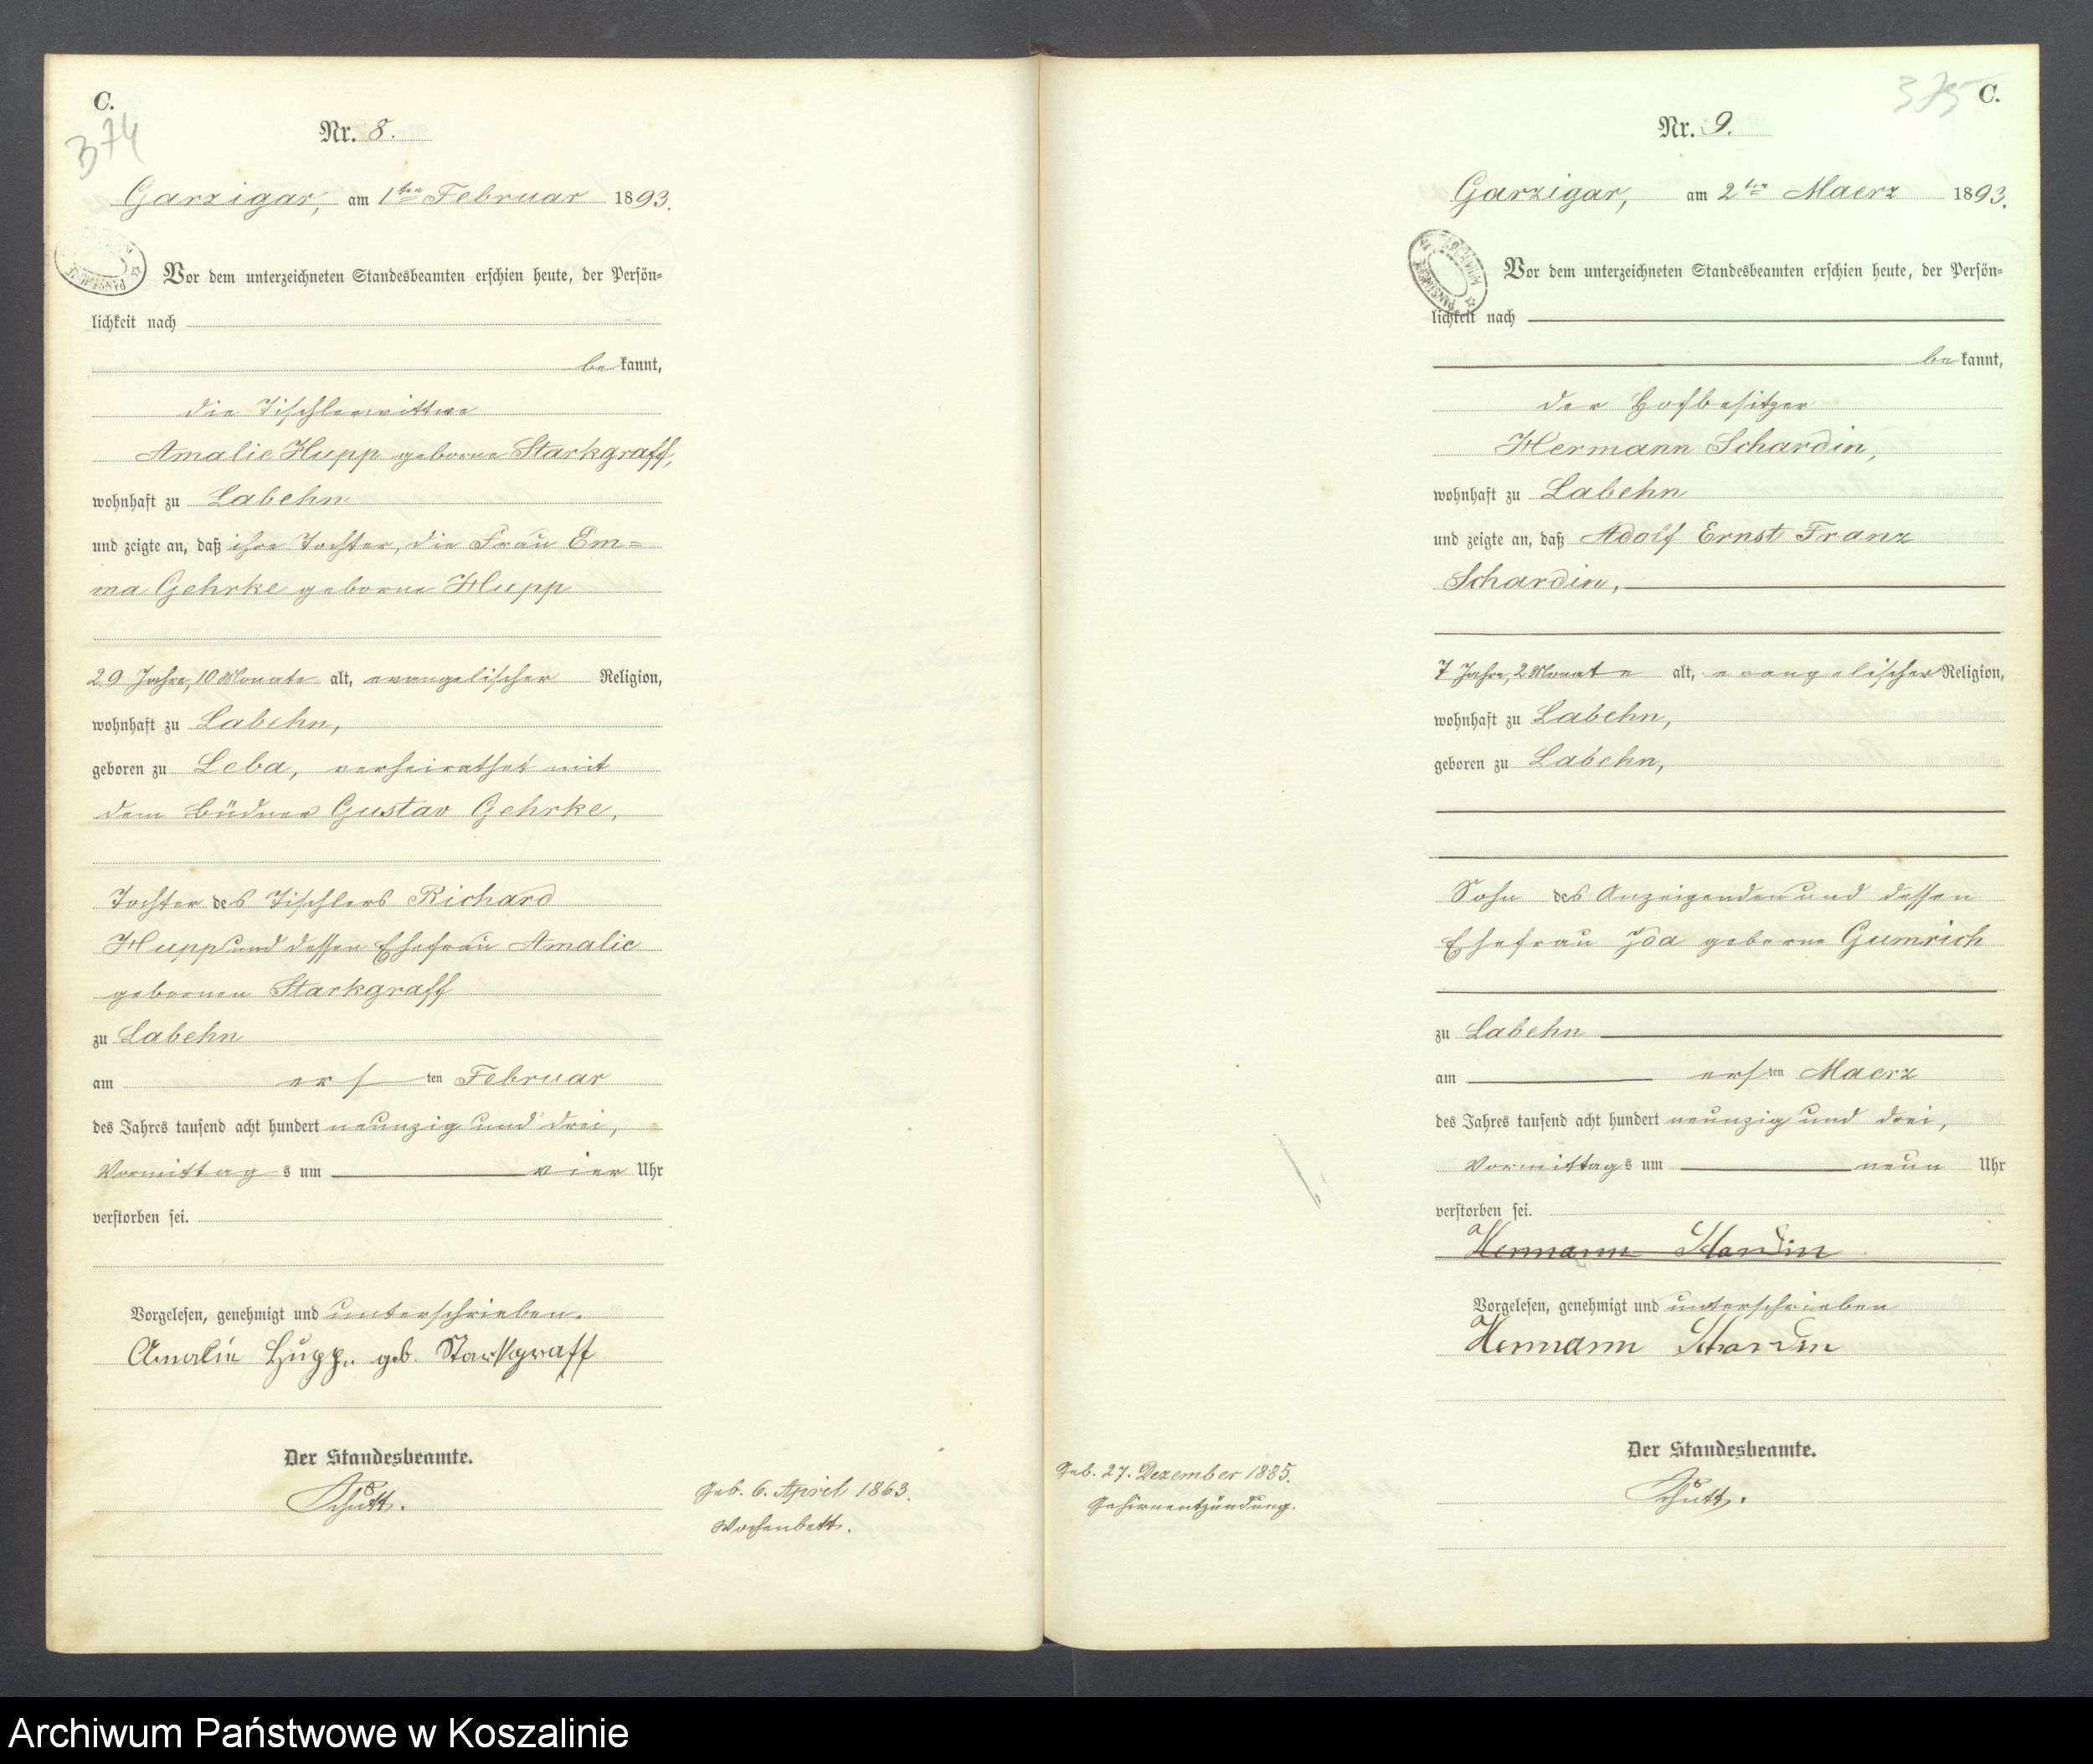 C.
374
Nr. 8.
Garzigar, am 1ten Februar 1893.
Vor dem unterzeichneten Standesbeamten erschien heute, der Persön-
lichkeit nach
bekannt,
die Tischlerwittwe
Amalie Hupp geborne Starkgraff,
wohnhaft zu Labehn
und zeigte an, daß ihre Tochter, die Frau Em=
ma Gehrke geborne Hupp
29 Jahre, 10 Monate alt, evangelischer Religion,
wohnhaft zu Labehn,
geboren zu Leba, verheirathet mit
dem Büdner Gustav Gehrke,
Tochter des Tischlers Richard
Hupp und dessen Ehefrau Amalie
gebornen Starkgraff
zu Labehn
am ersten Februar
des Jahres tausend acht hundert neunzig und drei,
Vormittags um vier Uhr
verstorben sei.
Vorgelesen, genehmigt und unterschrieben.
Amalie Hupp geb. Starkgraff
Der Standesbeamte.
Schütt.
Geb. 6. April 1863.
Wochenbett.
375 C.
Nr. 9.
Garzigar, am 2ten Maerz 1893.
Vor dem unterzeichneten Standesbeamten erschien heute, der Persön-
lichkeit nach
bekannt,
der Hofbesitzer
Hermann Schardin,
wohnhaft zu Labehn
und zeigte an, daß Adolf Ernst Franz
Schardin,
7 Jahre, 2 Monate alt, evangelischer Religion,
wohnhaft zu Labehn,
geboren zu Labehn,
Sohn des Anzeigenden und dessen
Ehefrau Ida geborne Gumrich
zu Labehn
am ersten Maerz
des Jahres tausend acht hundert neunzig und drei,
Vormittags um neun Uhr
verstorben sei.
Hermann Schardin
Vorgelesen, genehmigt und unterschrieben
Hermann Schardin
Der Standesbeamte.
Schütt.
Geb. 27. Dezember 1885.
Gehirnentzündung.
Archiwum Państwowe w Koszalinie